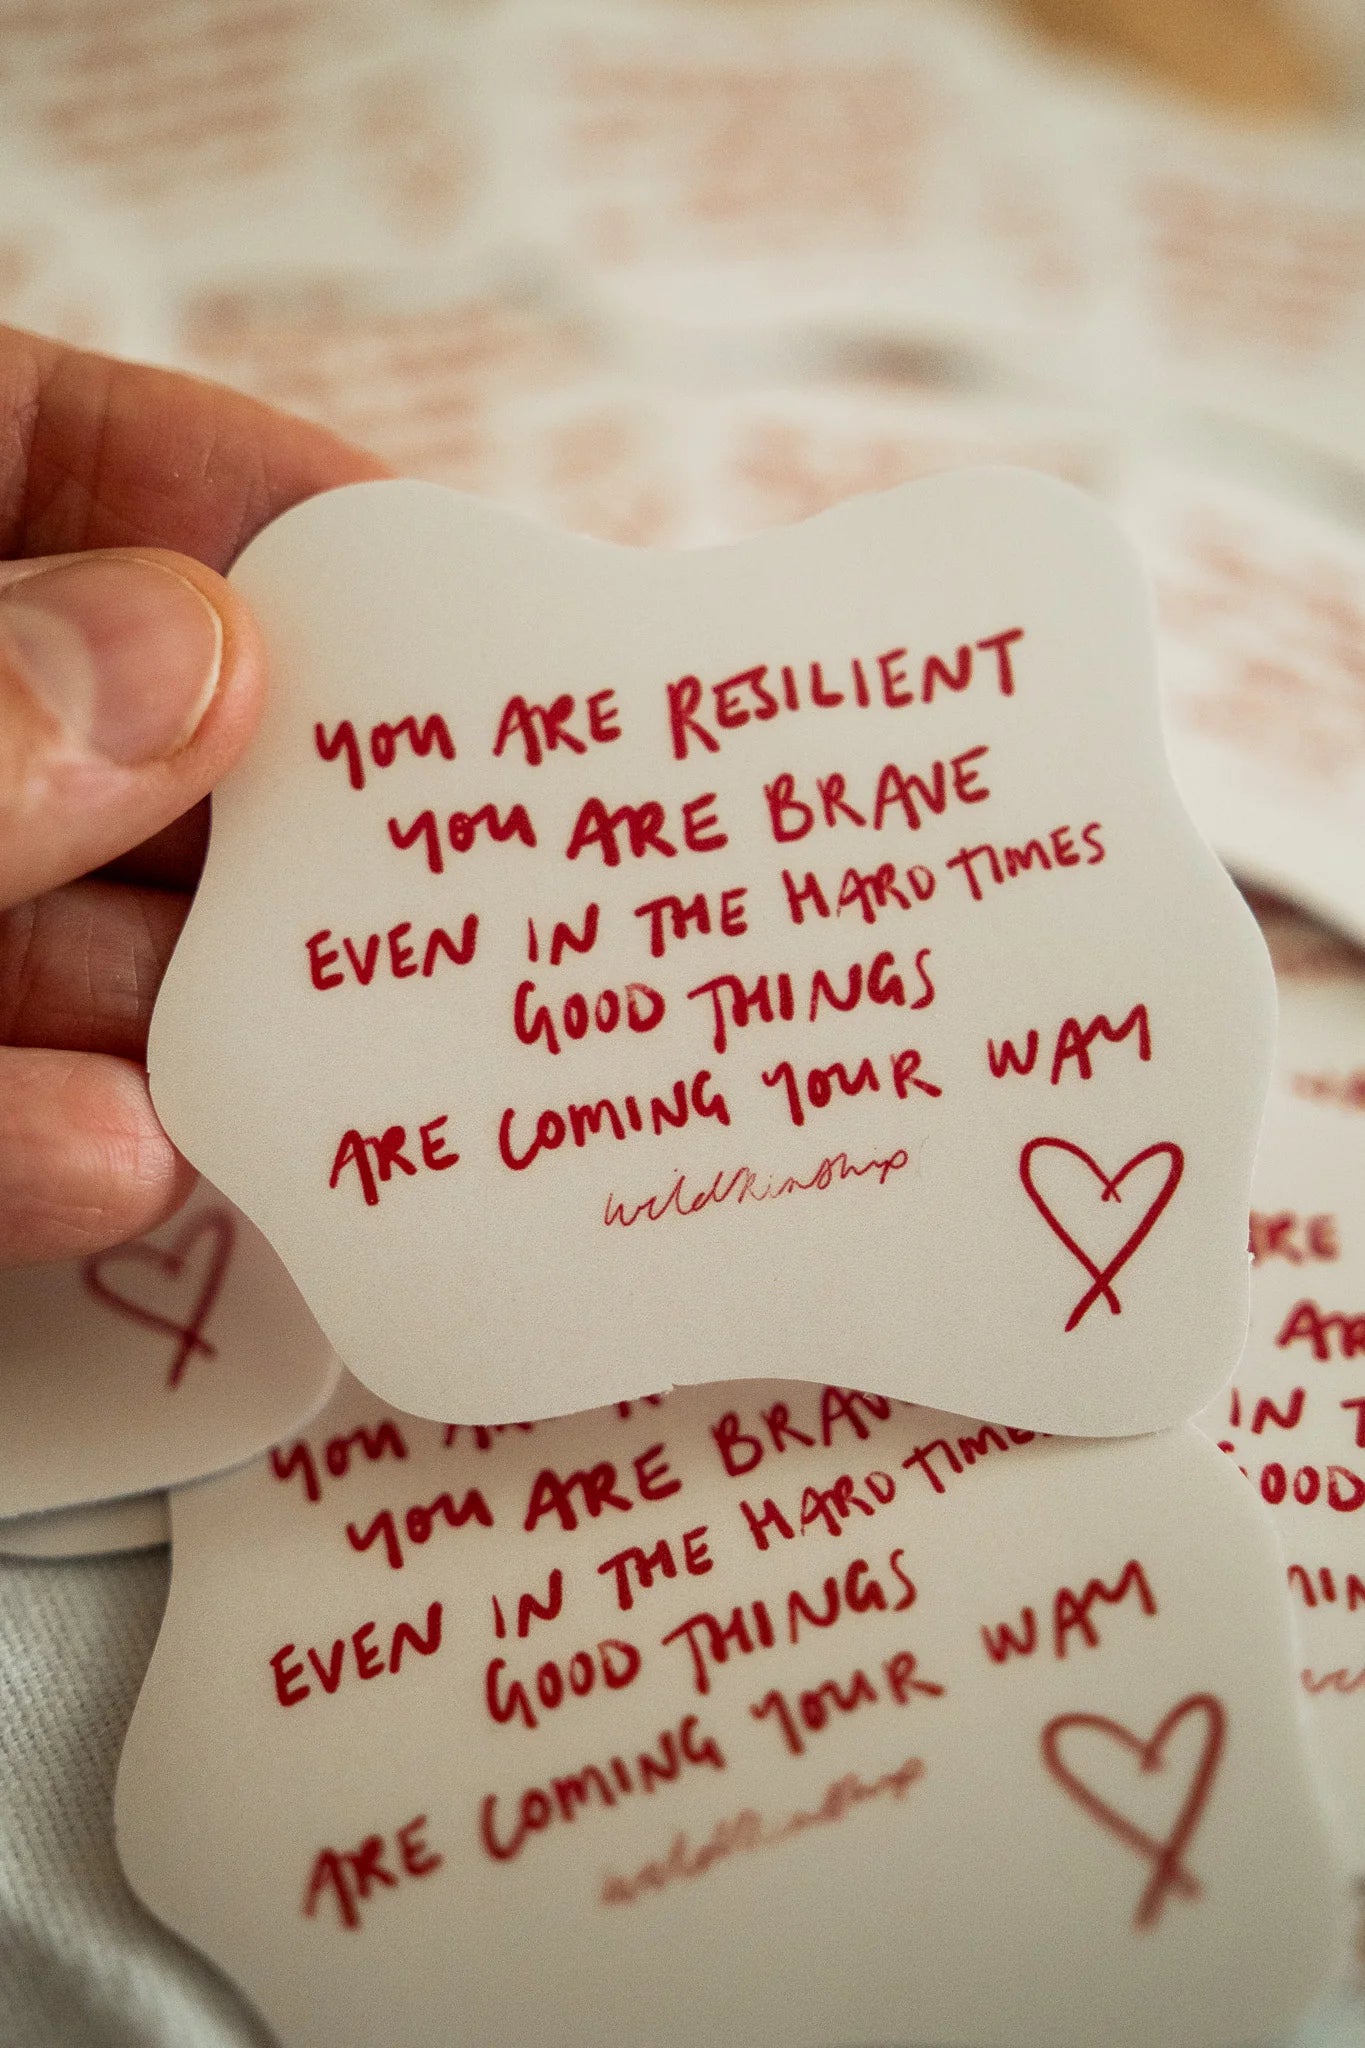 YOU ARE RESILIENT
YOU ARE BRAVE
EVEN IN THE HARD TIMES
GOOD THINGS
ARE COMING YOUR WAY
wildkinship
YOU
YOU ARE BRAV
EVEN IN THE HARD TIME
GOOD THINGS
ARE COMING YOUR WAY
wildkinship
ARE
AR
IN T
GOOD